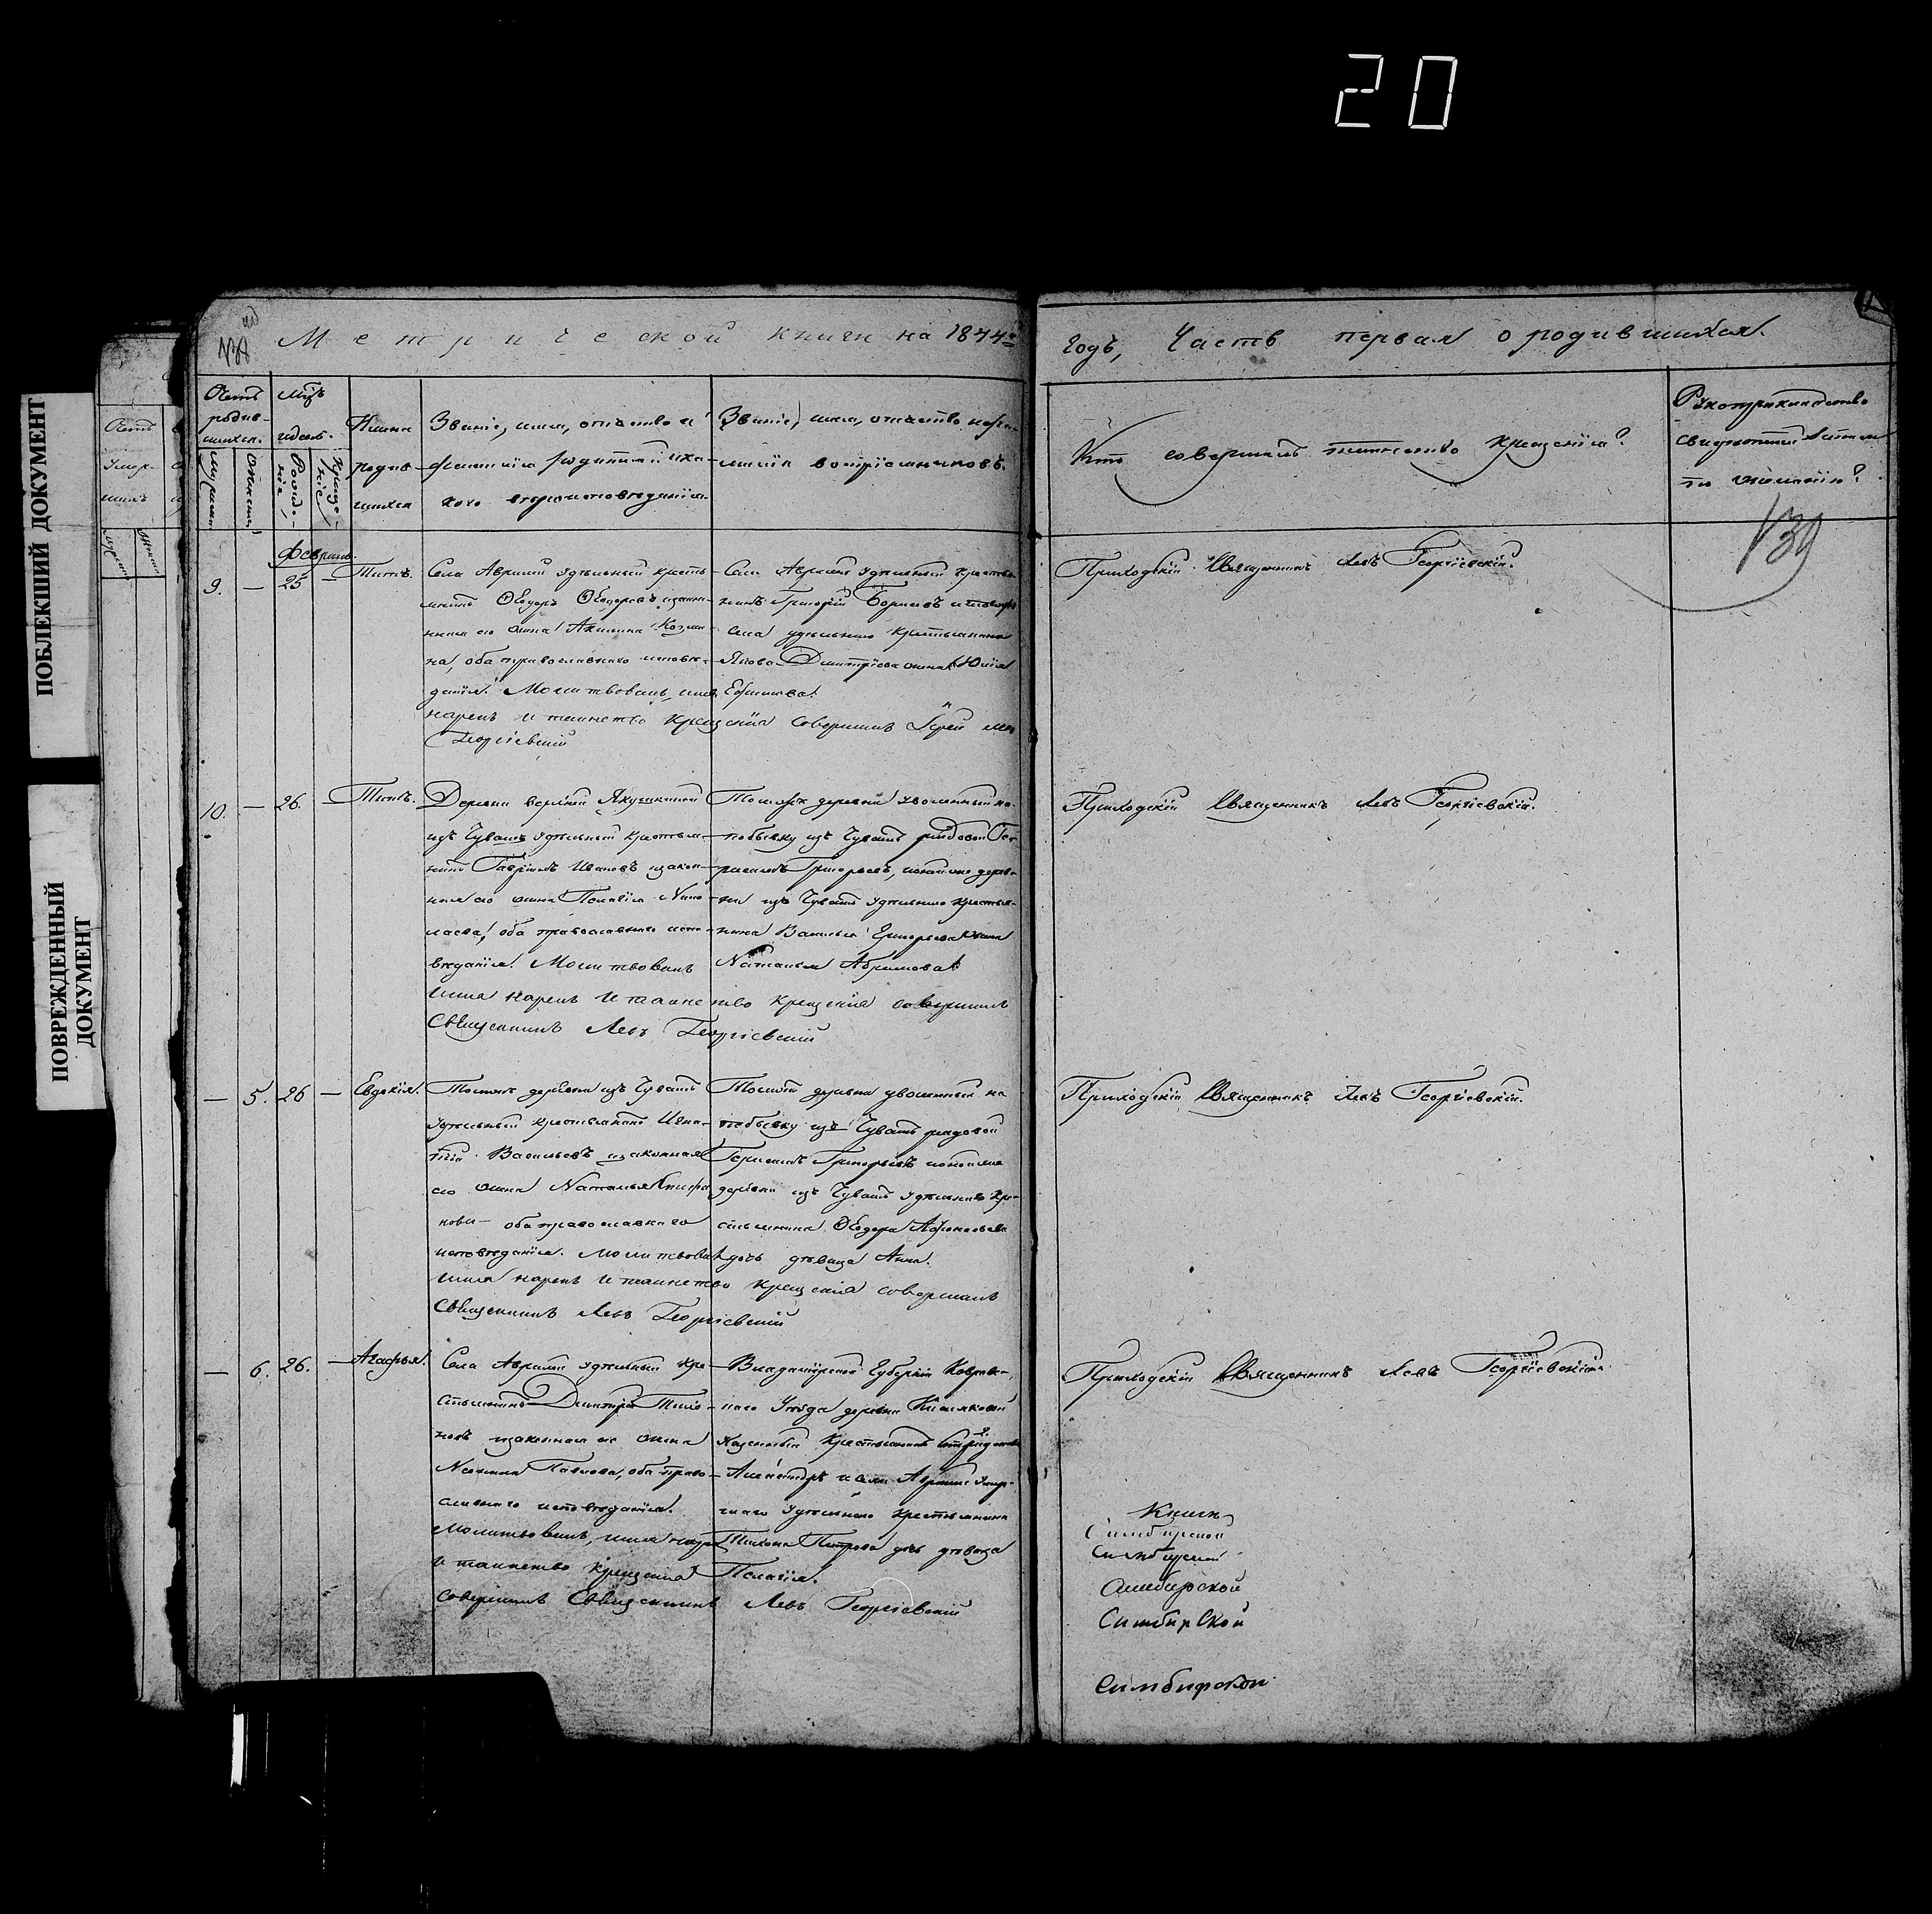 20
ПОБЛЕКШИЙ ДОКУМЕНТ
ПОВРЕЖДЕННЫЙ
ДОКУМЕНТ
Метрической книги на 1844й
годъ, Часть первая о родившихся.
Счетъ
родив-
шихся.
Мужеска
Женска
Мѣцъ
и день.
Рожде-
нiя
Креще-
нiя
Имена
родив-
шихся
Званiе, имя, отчество и
фамилiя родителей и ка-
кого вѣроисповѣданiя.
Званiе, имя, отчество и фа-
милiя воспрiемниковъ.
Кто совершалъ таинство крещенiя?
Рукоприкладство
свидѣтелей записи
по желанiю?
139
Февраль.
9. — 25 — Титъ.
Села Аврали удѣльный кресть-
янинъ Ѳеодоръ Ѳеодоровъ и закон-
ная его жена Акилина Козми-
на, оба православнаго исповѣ-
данiя. Молитвовалъ, имя
нарекъ и таинство крещенiя совершилъ Iерей Левъ
Георгiевскiй
Села Аврали удѣльный крестья-
нинъ Григорiй Борисовъ и тогожъ
села удѣльнаго крестьянина
Якова Дмитрiева жена Юлiя
Ефимова.
Приходскiй Священникъ Левъ Георгiевскiй.
10. — 26. — Титъ.
Деревни верхней Якушкиной
изъ Чувашъ удѣльный крестья-
нинъ Гаврiилъ Ивановъ и закон-
ная его жена Пелагiя Нико-
лаева, оба православнаго испо-
вѣданiя. Молитвовалъ
имя нарекъ и таинство крещенiя совершилъ
Священникъ Левъ Георгiевскiй
Тойже деревни уволенный на
побывку изъ Чувашъ рядовой Гер-
расимъ Григорьевъ, и тойже дерев-
ни изъ Чувашъ удѣльнаго крестья-
нина Василья Григорьева жена
Наталья Абрамова.
Приходскiй Священникъ Левъ Георгiевскiй.
— 5. 26 — Евдокiя.
Тойже деревни изъ Чувашъ
удѣльный крестьянинъ Игна-
тiй Васильевъ и законная
его жена Наталья
оба православнаго
исповѣданiя. Молитвовалъ
имя нарекъ и таинство крещенiя совершилъ
Священникъ Левъ Георгiевскiй
Тойже деревни уволенный на
побывку изъ Чувашъ рядовой
Герасимъ Григорьевъ и тойже
деревни изъ Чувашъ удѣльнаго кре-
стьянина Ѳеодора Афонасьева
дочь дѣвица Анна.
Приходскiй Священникъ Левъ Георгiевскiй.
— 6. 26. — Агафья.
Села Аврали удѣльный кре-
стьянинъ Дмитрiй Тихо-
новъ и законная его жена
Павлова, оба право-
славнаго исповѣданiя.
Молитвовалъ, имя нарекъ
и таинство крещенiя
совершилъ Священникъ Левъ Георгiевскiй
Владимiрской Губернiи Ковров-
скаго Уѣзда деревни
Казенный Крестьянинъ
Александръ и села Аврали умер-
шаго удѣльнаго крестьянина
Тихона Петрова дочь дѣвица
Пелагiя.
Приходскiй Священникъ Левъ Георгiевскiй.
Книги
Симбирской
Симбирской
Симбирской
Симбирской
Симбирской